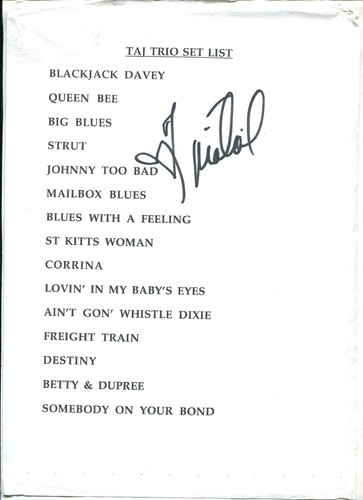 TAJ TRIO SET LIST
BLACKJACK DAVEY
QUEEN BEE
BIG BLUES
STRUT
JOHNNY TOO BAD
MAILBOX BLUES
BLUES WITH A FEELING
ST KITTS WOMAN
CORRINA
LOVIN' IN MY BABY'S EYES
AIN'T GON' WHISTLE DIXIE
FREIGHT TRAIN
DESTINY
BETTY & DUPREE
SOMEBODY ON YOUR BOND